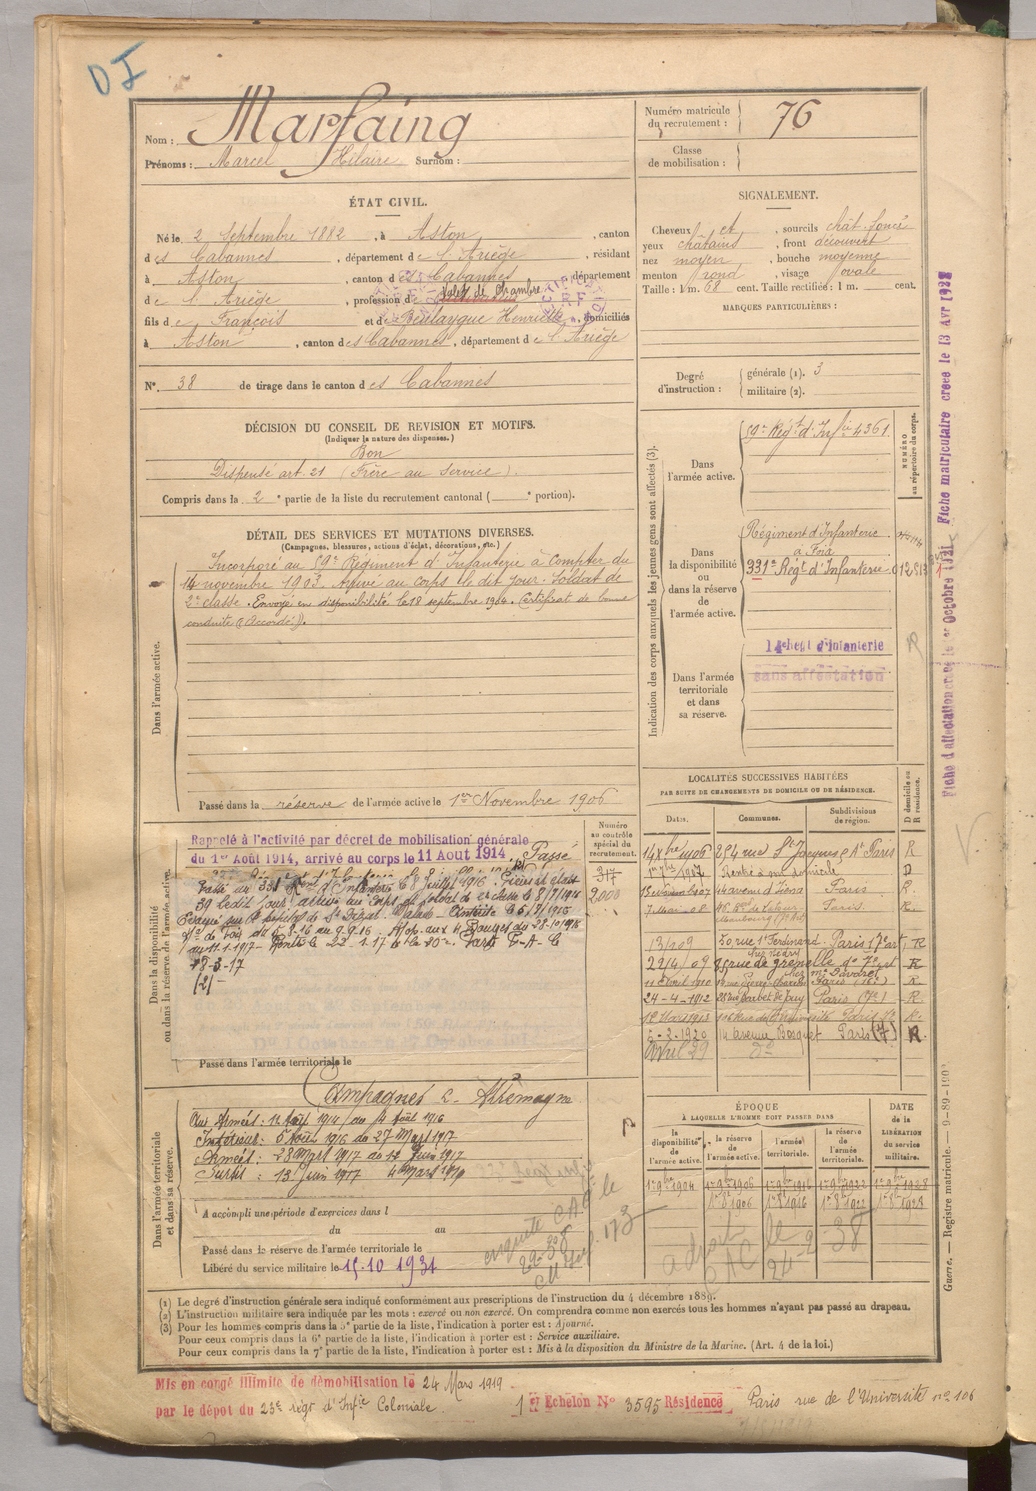 DI
Nom : Marfaing
Prénoms : Marcel Hilaire Surnom :
Numéro matricule du recrutement : 76
Classe de mobilisation :
ÉTAT CIVIL.
Né le 2 Septembre 1882, à Aston, canton
des Cabannes, département de l'Ariège, résidant
à Aston, canton des Cabannes, département
de l'Ariège, profession de Valet de Chambre
fils de François et de Boulaygue Henriette, domiciliés
à Aston, canton des Cabannes, département de l'Ariège
N°. 38 de tirage dans le canton des Cabannes
SIGNALEMENT.
Cheveux et, sourcils chât. foncé
yeux châtains, front découvert
nez moyen, bouche moyenne
menton rond, visage ovale
Taille : 1 m. 68 cent. Taille rectifiée : 1 m. cent.
MARQUES PARTICULIÈRES :
Degré d'instruction : générale (1). 3
militaire (2).
DÉCISION DU CONSEIL DE REVISION ET MOTIFS.
(Indiquer la nature des dispenses.)
Bon
Dispensé art. 21 (Frère au Service).
Compris dans la 2e partie de la liste du recrutement cantonal ( e portion).
DÉTAIL DES SERVICES ET MUTATIONS DIVERSES.
(Campagnes, blessures, actions d'éclat, décorations, etc.)
Dans l'armée active.
Incorporé au 59e Régiment d'Infanterie à Compter du
14 novembre 1903. Arrivé au corps le dit jour. Soldat de
2e classe. Envoyé en disponibilité le 18 septembre 1904. Certificat de bonne
conduite "Accordé".
Passé dans la réserve de l'armée active le 1er Novembre 1906
Indication des corps auxquels les jeunes gens sont affectés (3).
NUMÉRO au répertoire du corps.
Dans l'armée active.
59e Régt d'Infie 4361
Dans la disponibilité ou dans la réserve de l'armée active.
Régiment d'Infanterie
à Foix
331e Régt d'Infanterie 012813
Dans l'armée territoriale et dans sa réserve.
d'infanterie
sans affectation
R
Fiche d'affectation créée le 1er Octobre 1921 Fiche matriculaire créée le 13 Avr 1928
LOCALITÉS SUCCESSIVES HABITÉES
PAR SUITE DE CHANGEMENTS DE DOMICILE OU DE RÉSIDENCE.
Dates. Communes. Subdivisions de région. D domicile ou R résidence.
14 Xbre 1906 254 rue St Jacques Paris R
1907 Rentré à son domicile D
1907 44 avenue d'Iéna Paris R.
7 Mai 08 Paris. R.
13/1/09 50 rue St Ferdinand Paris 17e art R
22/4/09 85 rue de grenelle d° 7e art R
11 Avril 1910 Paris R
24-4-1912 26 rue Barbet de Jouy Paris (7e) R.
Paris R.
2-2-1920 14 avenue Bosquet Paris (7) R.
Avril 29 d°
Dans la disponibilité ou dans la réserve de l'armée active.
Numéro au contrôle spécial du recrutement.
317
2.000
Rappelé à l'activité par décret de mobilisation générale
du 1er Août 1914, arrivé au corps le 11 Aout 1914. Passé
Passé au 331e Régt d'Infanterie le 8 juillet 1916.
59 ledit jour arrivé au Corps et soldat de 2e classe le 8/7/1916
Évacué sur Malade - Entérite le 5/7/1916
de Foix du 6.8.16 au 9.9.16.
au 11.1.1917 - le 22.1.17
28-3-17
Passé dans l'armée territoriale le
Dans l'armée territoriale et dans sa réserve.
Campagnes c. Allemagne
Aux Armées : 11 Août 1914 au 4 Août 1916
Intérieur : 5 Août 1916 au 27 Mars 1917
Armées : 28 Mars 1917 au 12 Juin 1917
Sursis : 13 Juin 1917 4 Mars 1919
A accompli une période d'exercices dans l
du au
Passé dans la réserve de l'armée territoriale le
Libéré du service militaire le 15.10 1931
enquête CAC le
22-38
173
ÉPOQUE
À LAQUELLE L'HOMME DOIT PASSER DANS
DATE DE LA LIBÉRATION du service militaire.
la disponibilité de l'armée active. la réserve de l'armée active. l'armée territoriale. la réserve de l'armée territoriale.
1er 9bre 1904 1er 9bre 1906 1er 9bre 1916 1er 9bre 1922 1er 9bre 1928
1er 8bre 1906 1er 8 1916 1er 8bre 1922 1er 8bre 1928
a droit le 38
CAC 24-2
Guerre. — Registre matricule. — 9-89-1900
(1) Le degré d'instruction générale sera indiqué conformément aux prescriptions de l'instruction du 4 décembre 1889.
(2) L'instruction militaire sera indiquée par les mots : exercé ou non exercé. On comprendra comme non exercés tous les hommes n'ayant pas passé au drapeau.
(3) Pour les hommes compris dans la 5e partie de la liste, l'indication à porter est : Ajourné.
Pour ceux compris dans la 6e partie de la liste, l'indication à porter est : Service auxiliaire.
Pour ceux compris dans la 7e partie de la liste, l'indication à porter est : Mis à la disposition du Ministre de la Marine. (Art. 4 de la loi.)
Mis en congé illimité de démobilisation le 24 Mars 1919
par le dépot du 23e régt d'Infie Coloniale.
1er Echelon N° 3595 Résidence Paris rue de l'Université n° 106